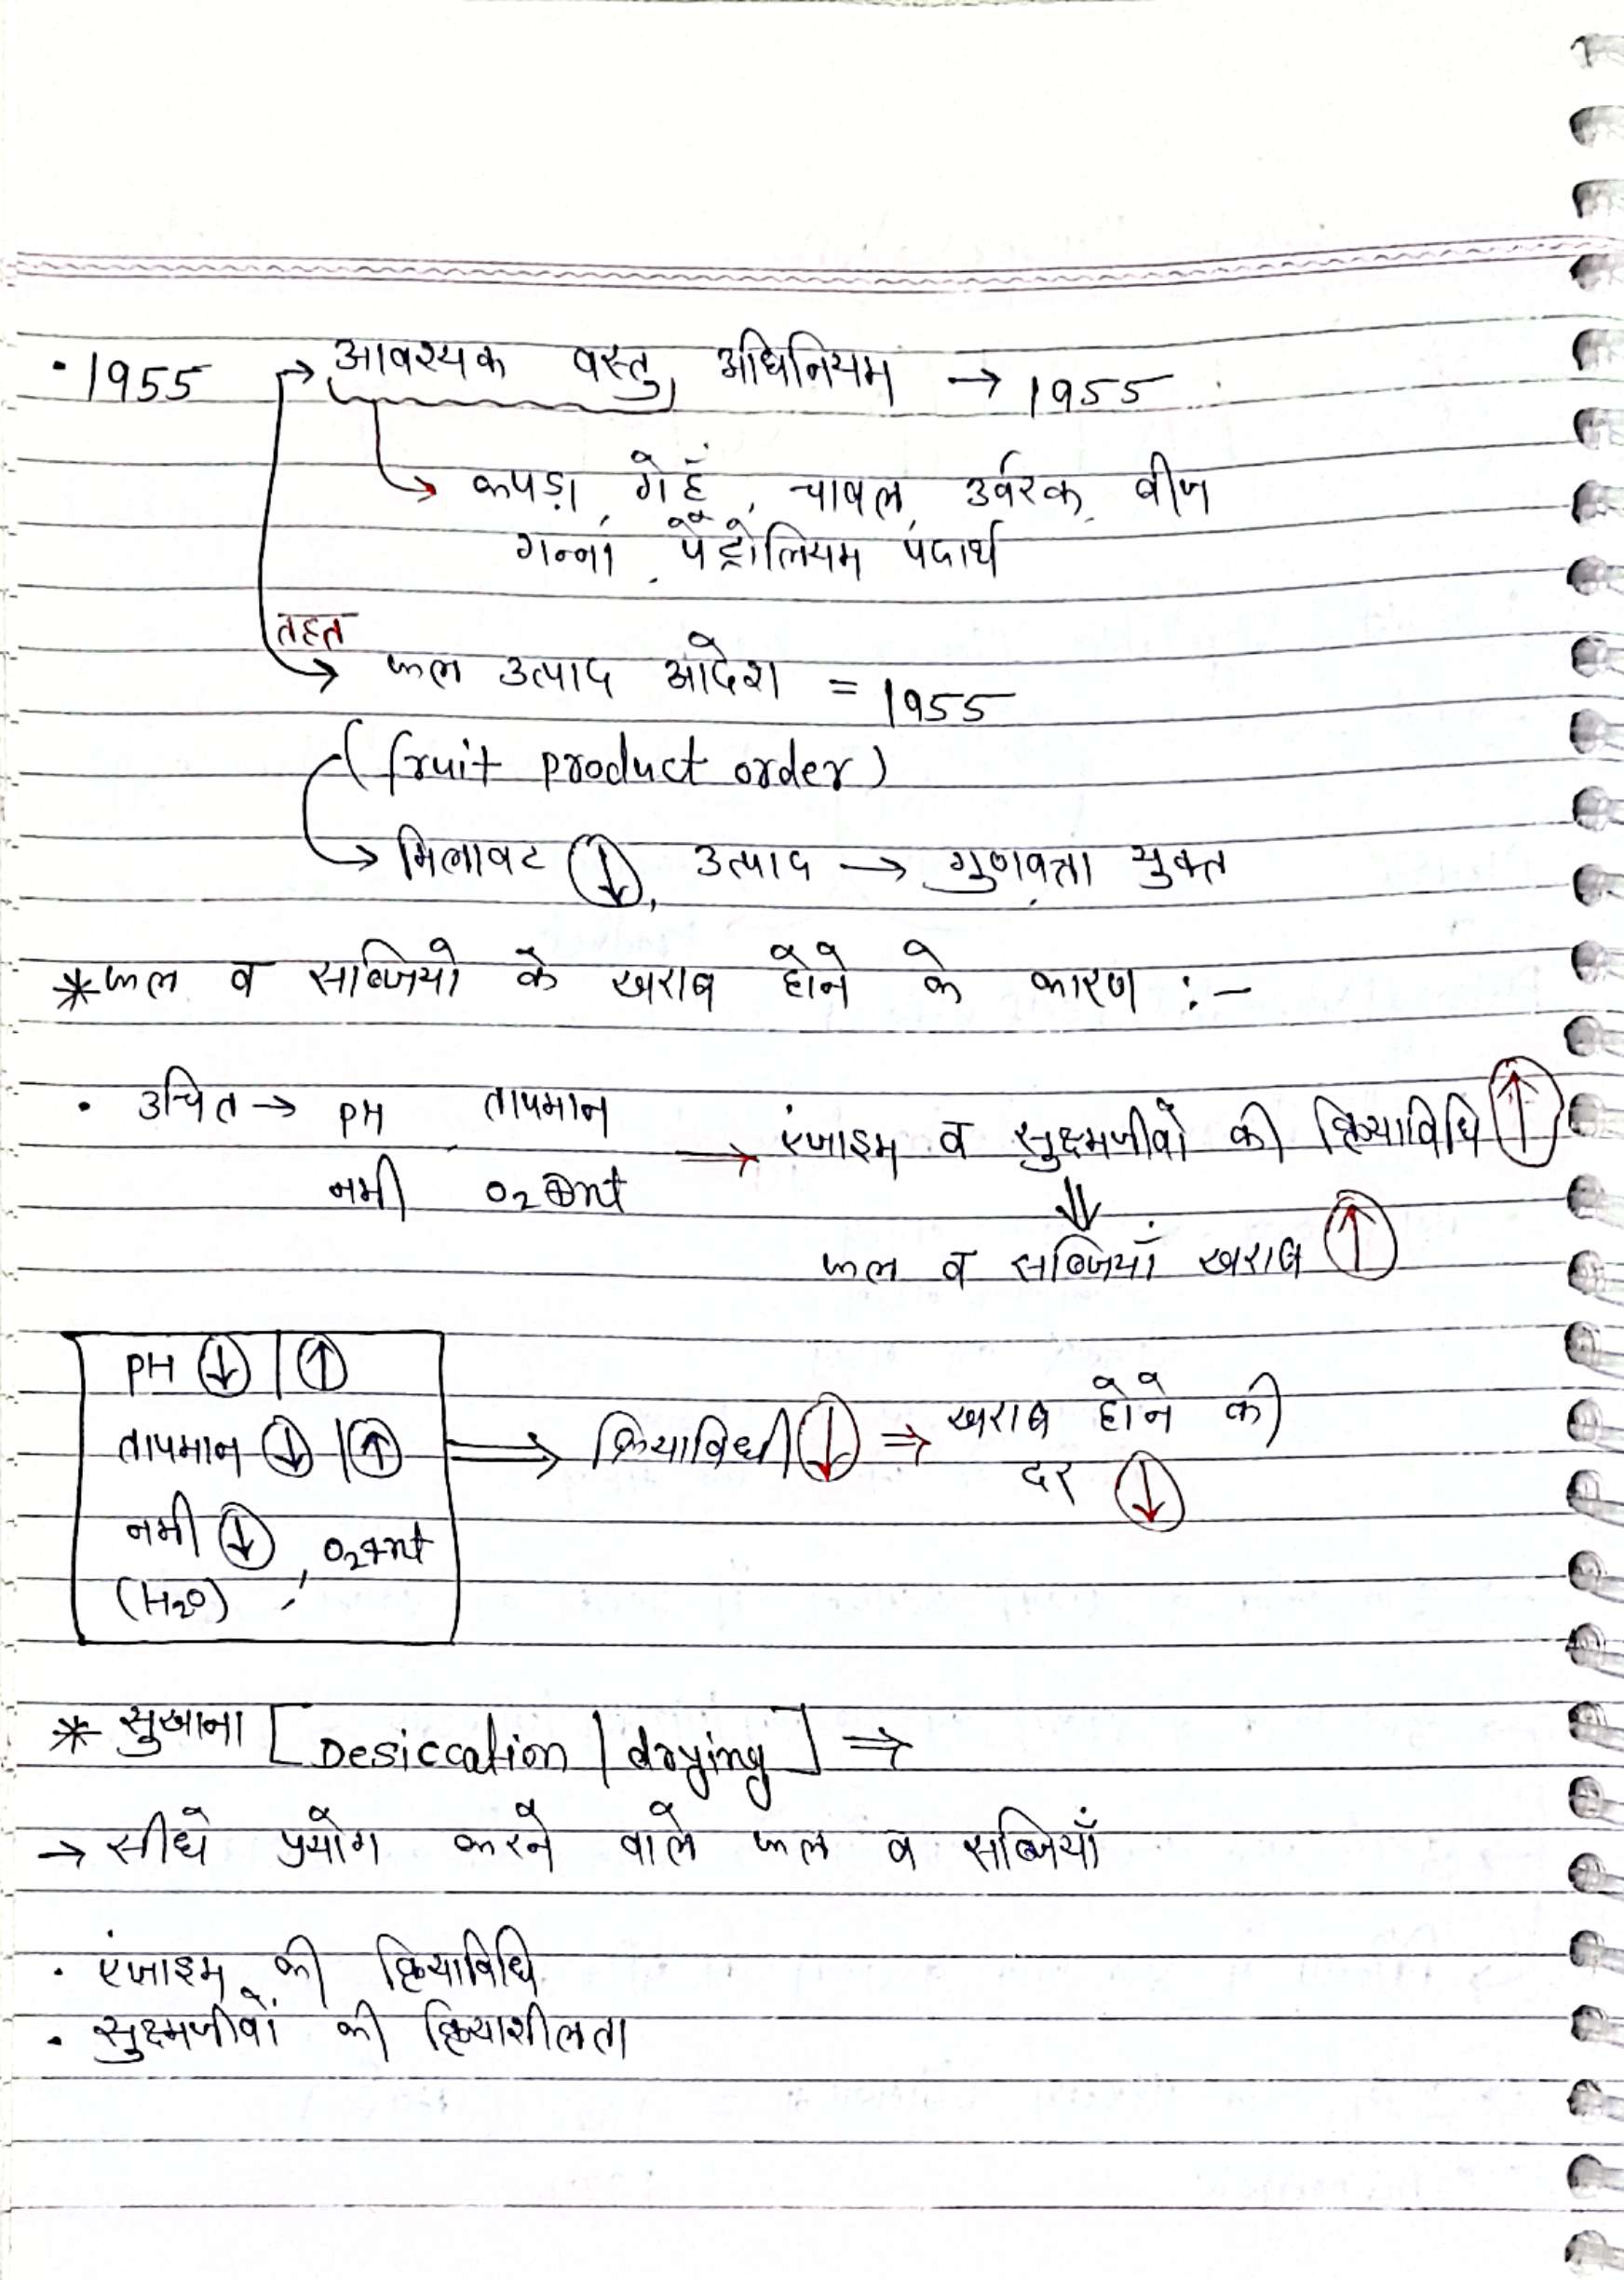 • 1955 → आवश्यक वस्तु अधिनियम → 1955
→ कपड़ा, गेहूँ, चावल, उर्वरक, बीज
गन्ना, पेट्रोलियम पदार्थ
तहत
→ फल उत्पाद आदेश = 1955
(fruit product order)
→ मिलावट ↓, उत्पाद → गुणवत्ता युक्त
* फल व सब्जियो के खराब होने के कारण :-
• उचित → PH, तापमान
⇒ एंजाइम व सुक्ष्मजीवों की क्रियाविधि ↑
नमी O2
⇓
फल व सब्जियाँ खराब ↑
PH ↓ | ↑
तापमान ↓ | ↑ ⇒ क्रियाविधी ↓ ⇒ खराब होने की
दर ↓
नमी ↓, O2
(H2O)
* सुखाना [Desiccation | drying] ⇒
→ सीधे प्रयोग करने वाले फल व सब्जियाँ
• एंजाइम की क्रियाविधि
• सुक्ष्मजीवों की क्रियाशीलता